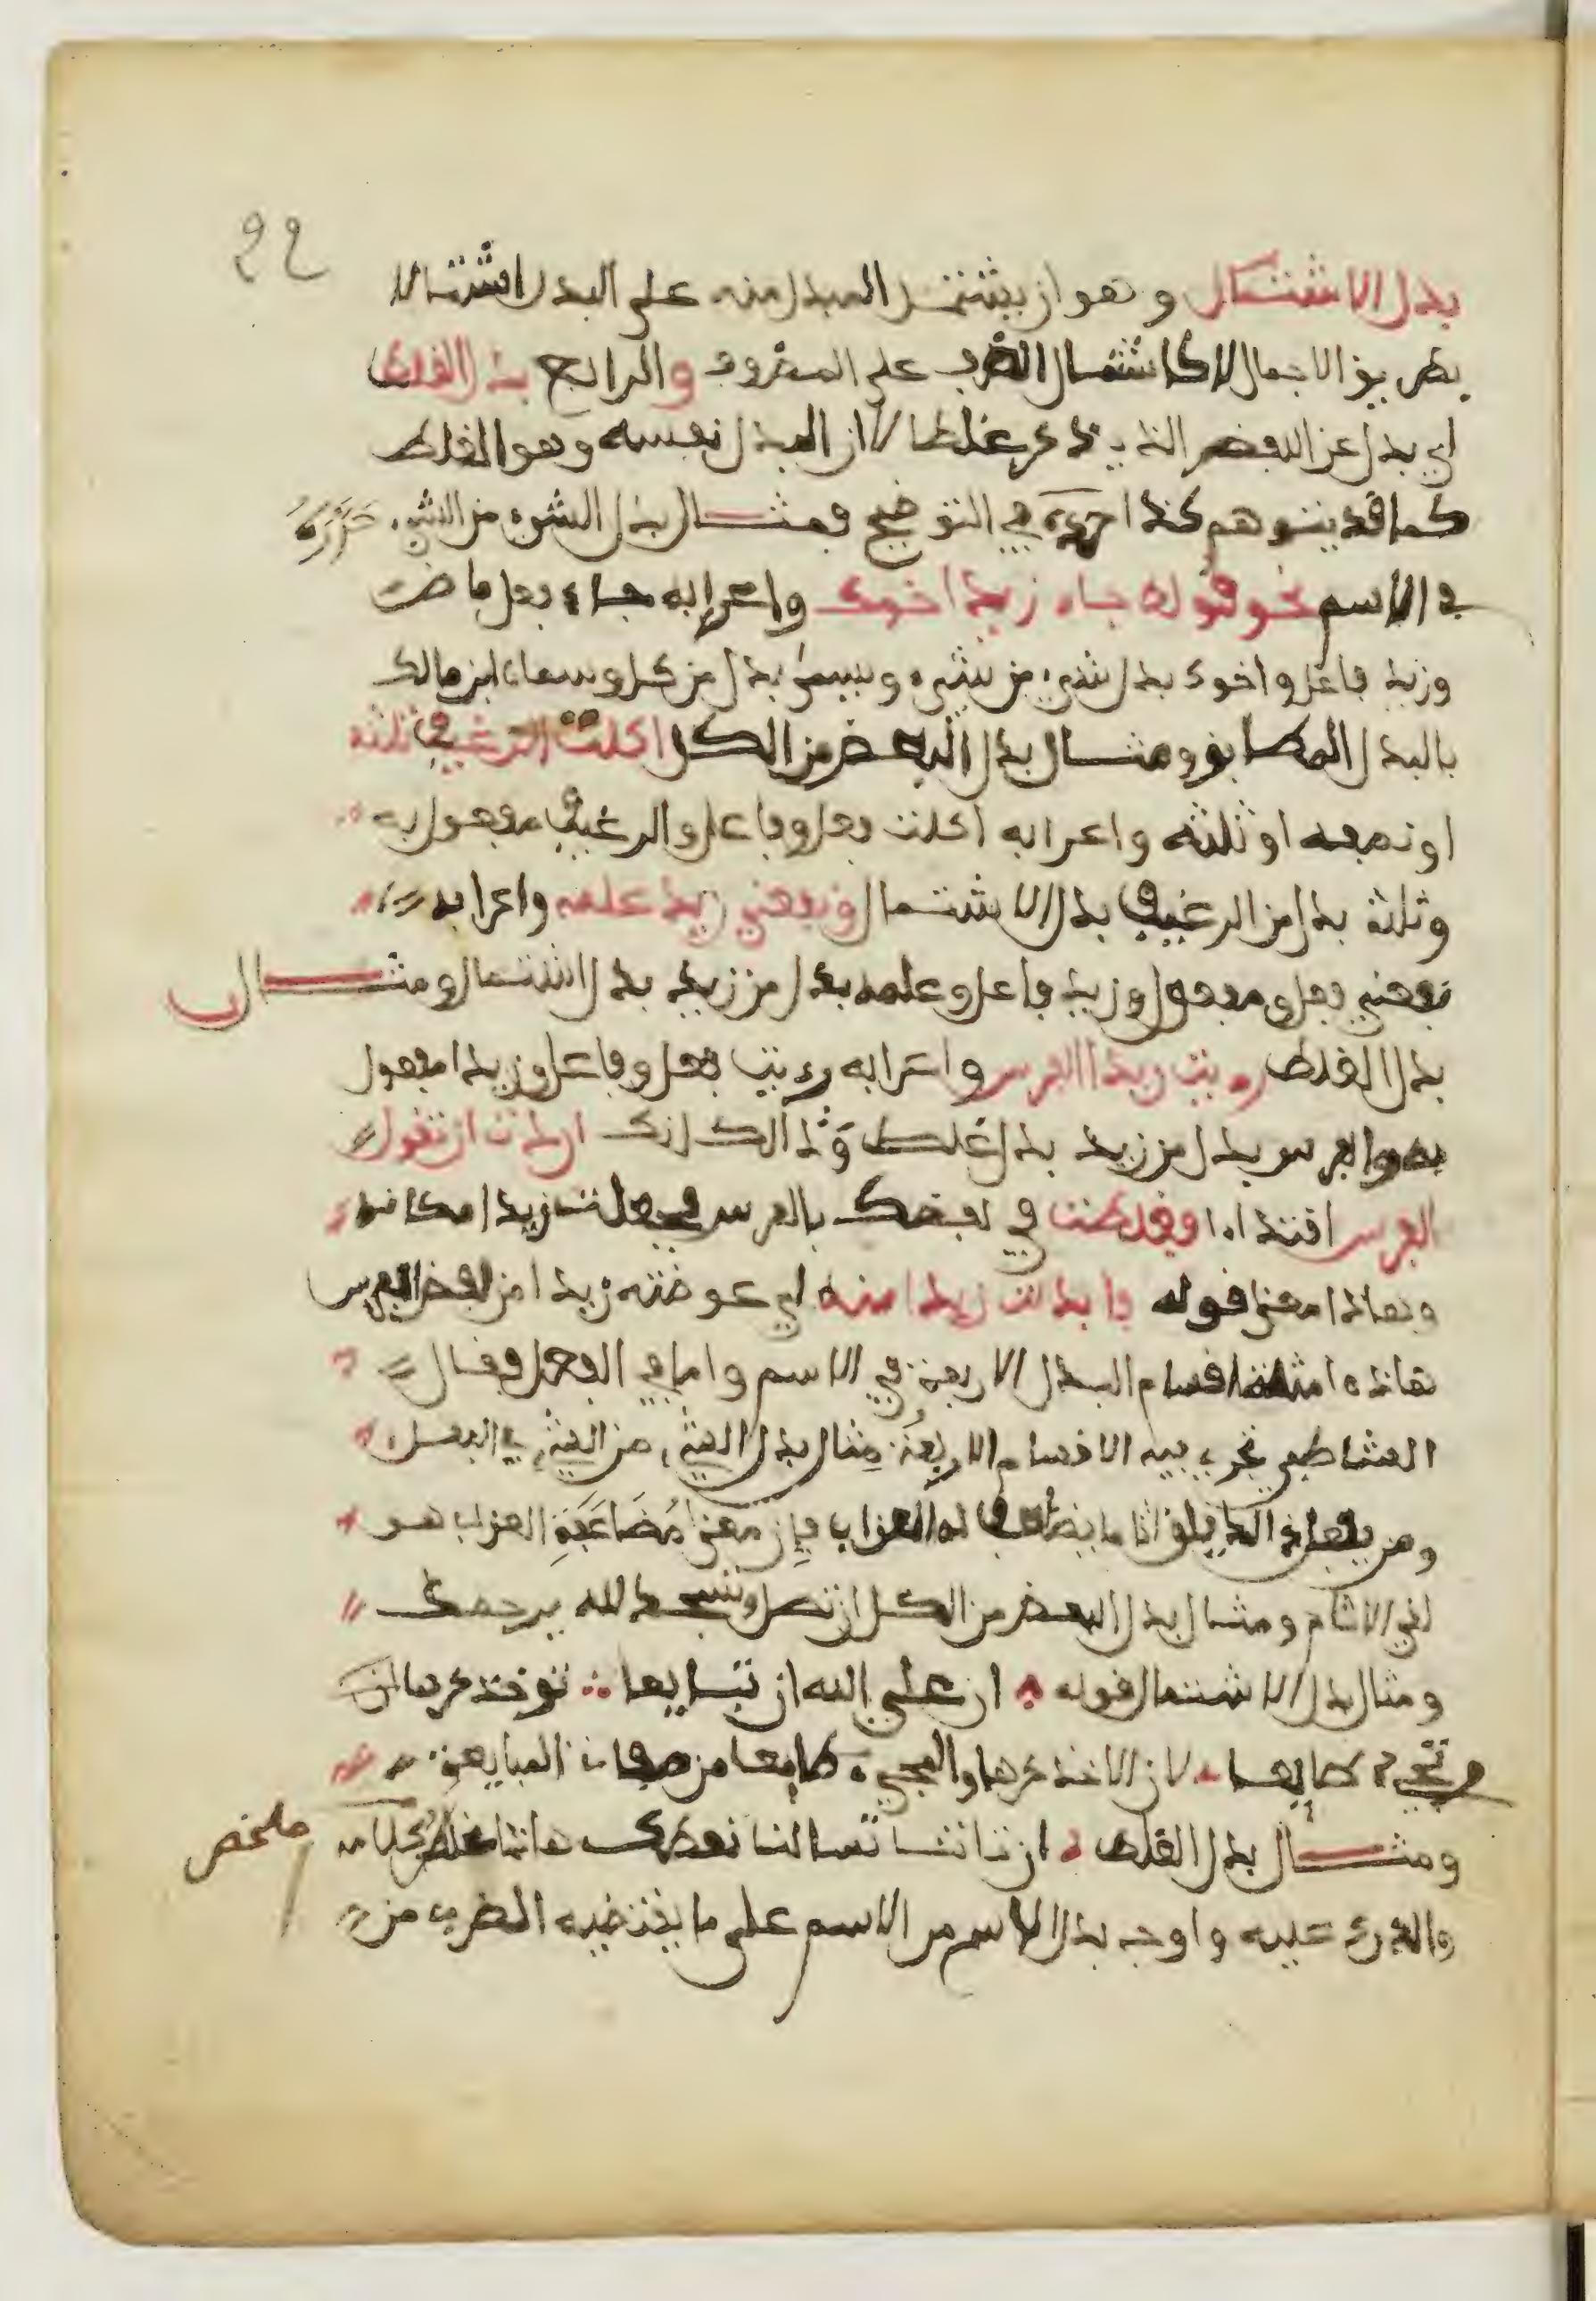 22
بدل الاشتمال وهو ان يشتمل المبدل منه على البدل اشتمالا
بطريق الاجمال لا كاشتمال الظرف على المظروف والرابع بدل الغلط
اي بدل عن اللفظ الذي ذكر غلطا لا ان البدل نفسه وهو الغلط
كما قد يتوهم كذا في التوضيح فمثال بدل الشيء من الشيء حرره
في الاسم نحو قولك جاء زيد اخوك واعرابه جاء فعل ماض
وزيد فاعل واخوك بدل شيء من شيء ويسمى بدل من كل وسماه ابن مالك
بالبدل المطابق ومثال بدل البعض من الكل اكلت الرغيف ثلثه
او نصفه او ثلثه واعرابه اكلت فعل وفاعل والرغيف مفعول به
وثلثه بدل من الرغيف بدل الاشتمال ونفعني زيد علمه واعرابه
نفعني فعل ومفعول وزيد فاعل وعلمه بدل من زيد بدل اشتمال ومثال
بدل الغلط رءيت زيدا الفرس واعرابه رءيت فعل وفاعل وزيدا مفعول
به والفرس بدل من زيد بدل غلط وذالك انك اردت ان تقول
الفرس ابتداءا فغلطت في لفظك بالفرس فجعلت زيدا مكانه
وهاذا معنى قوله فابدلت زيدا منه اي عوضته زيدا من لفظ الفرس
هاذه امثلة اقسام البدل الاربعة في الاسم واما في الفعل فقال
الشاطبي تجري فيه الاقسام الاربعة مثال بدل الشيء من الشيء في الفعل
ومن يفعل ذالك يلق اثاما يضاعف له العذاب فإن معنى مضاعفة العذاب هو
لقي الاثام ومثال بدل البعض من الكل ان تصل وتسجد لله يرحمك
ومثال بدل الاشتمال قوله ان علي الله ان تبايعا تؤخذ كرها
او تجيء طايعا لان الاخذ كرها والمجيء طايعا من صفات المبايعة
ومثال بدل الغلط ان تاتنا تسالنا نعطك هاذا ملخص
والدرك عليه واوجه بدل الاسم من الاسم على ما يقتضيه الضرب من